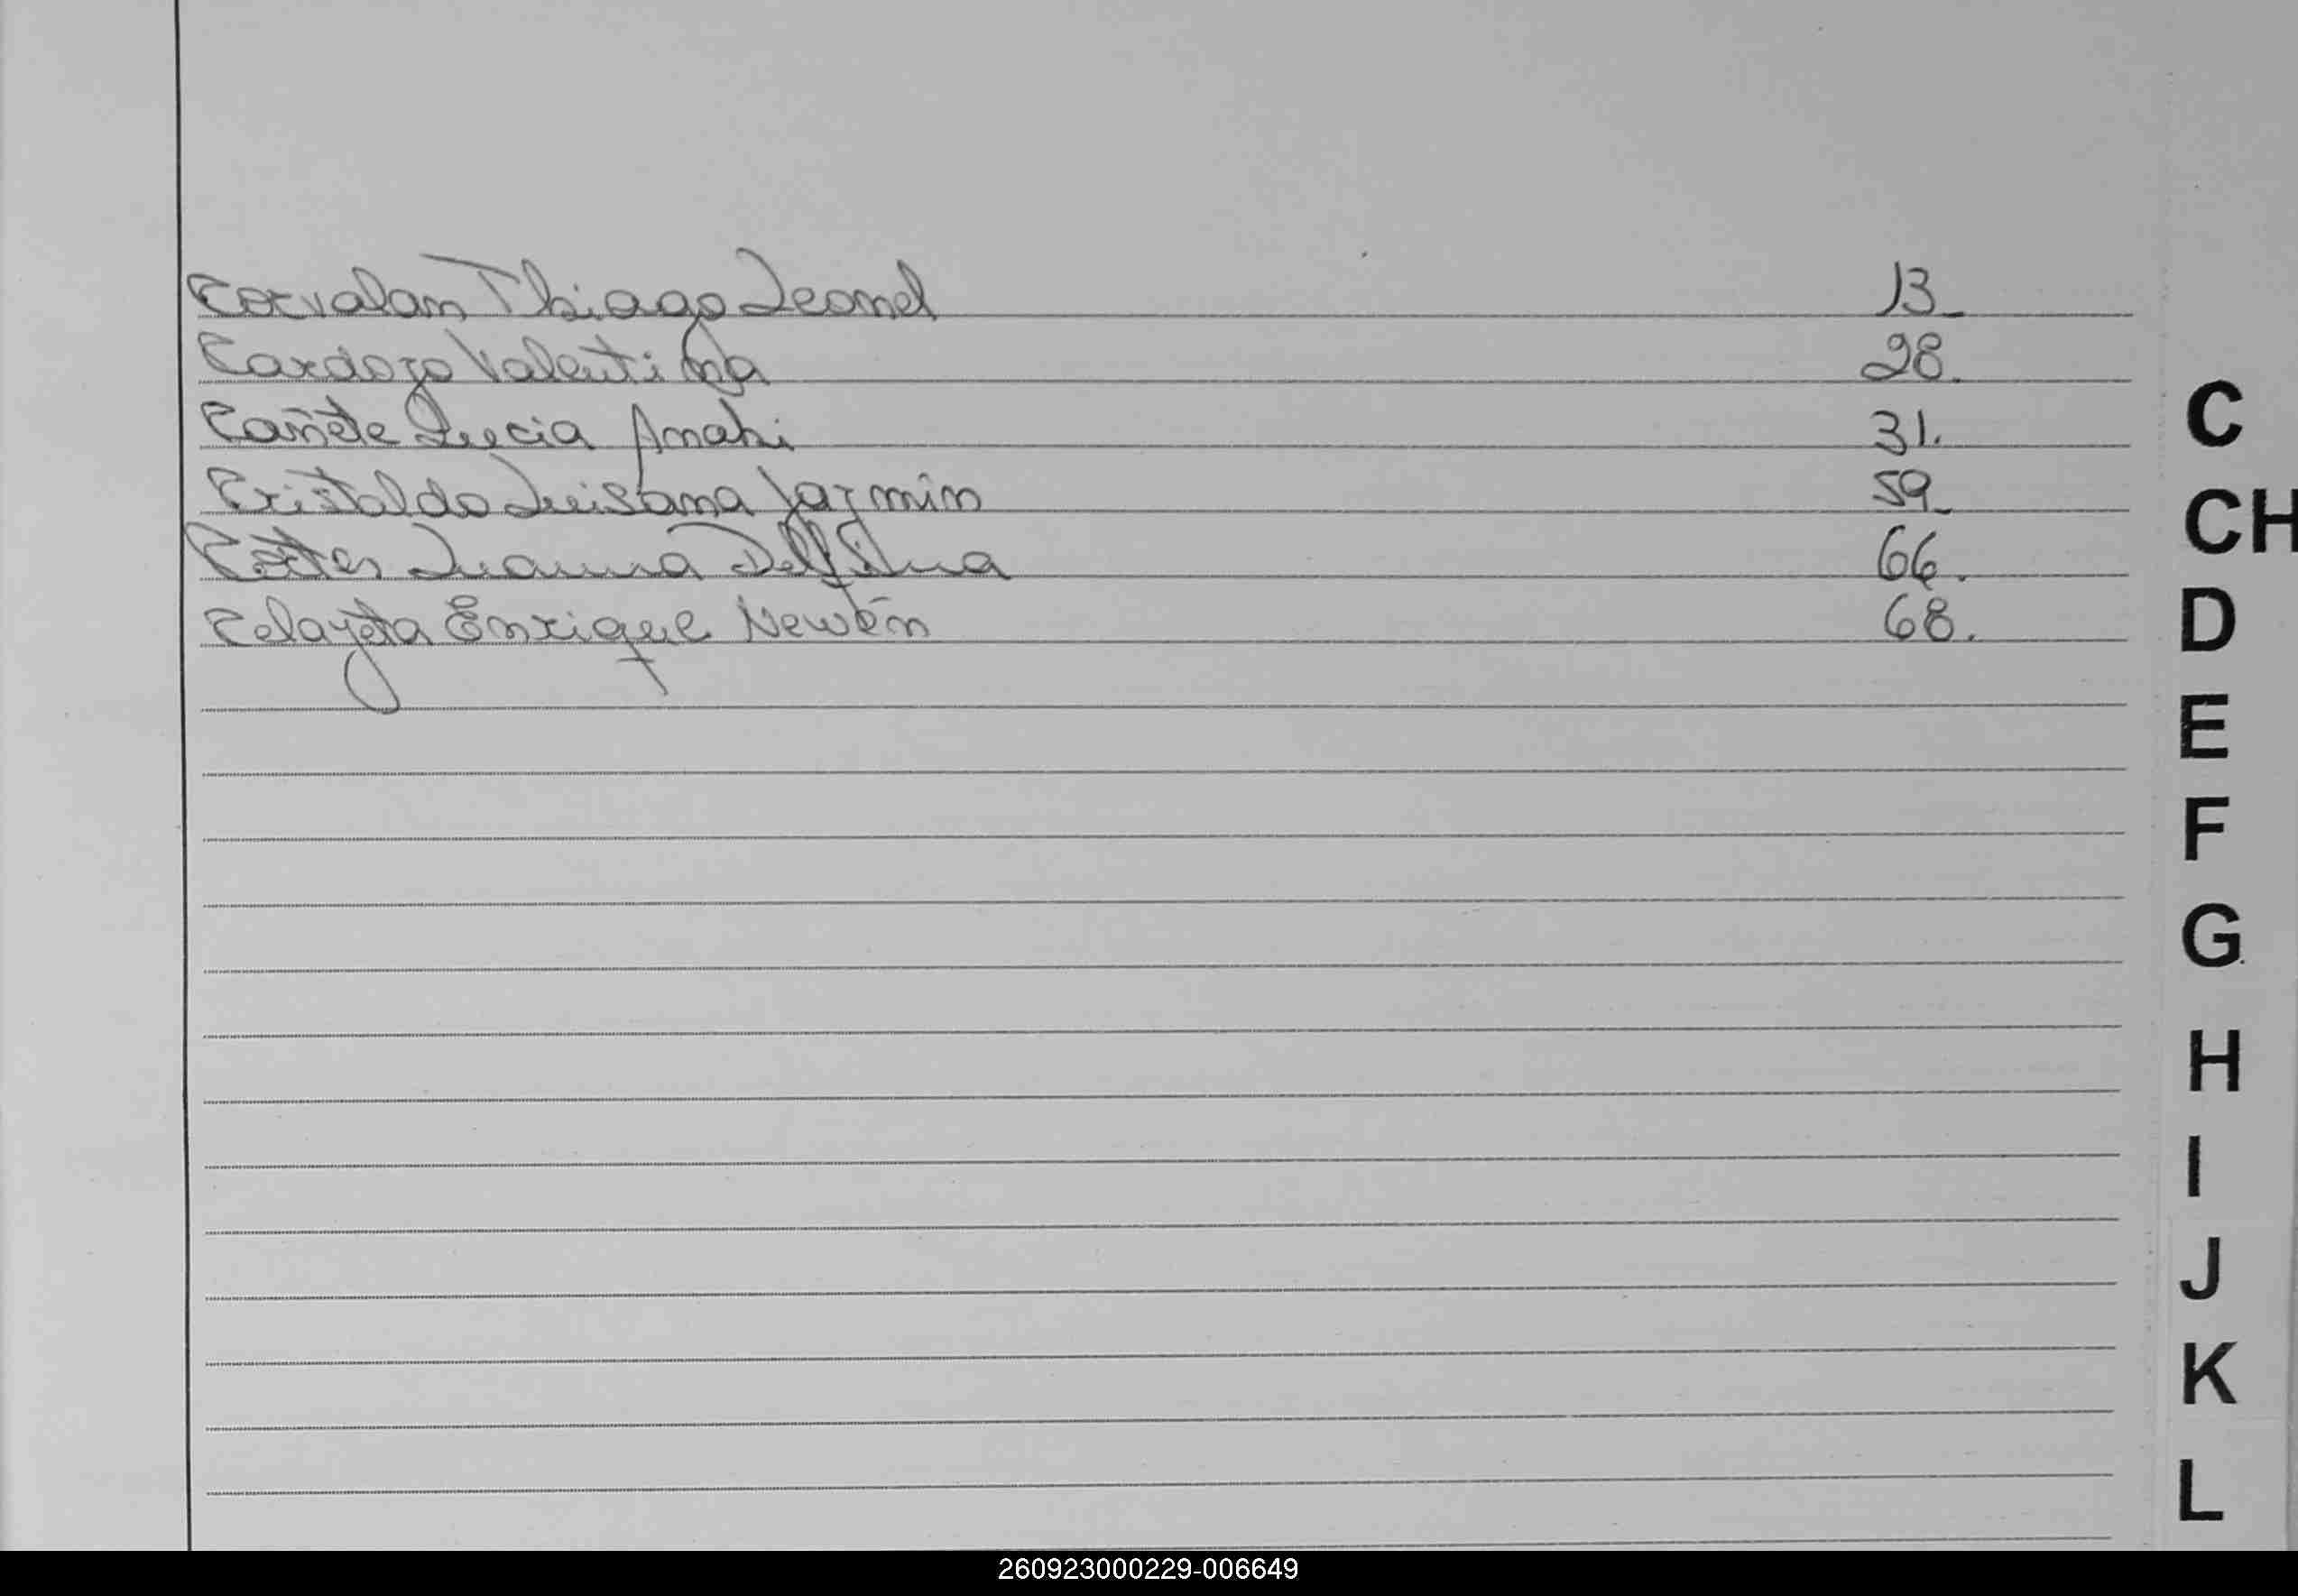 Corvalan Thiago Leonel 13
Cardozo Valentina 28.
Cañete Lucia Anahi 31.
C
Cristaldo Luisana Jazmin 59
CH
Luanna Delfina 66.
Celayeta Enrique Newén 68.
D
E
F
G
H
I
J
K
L
260923000229-006649